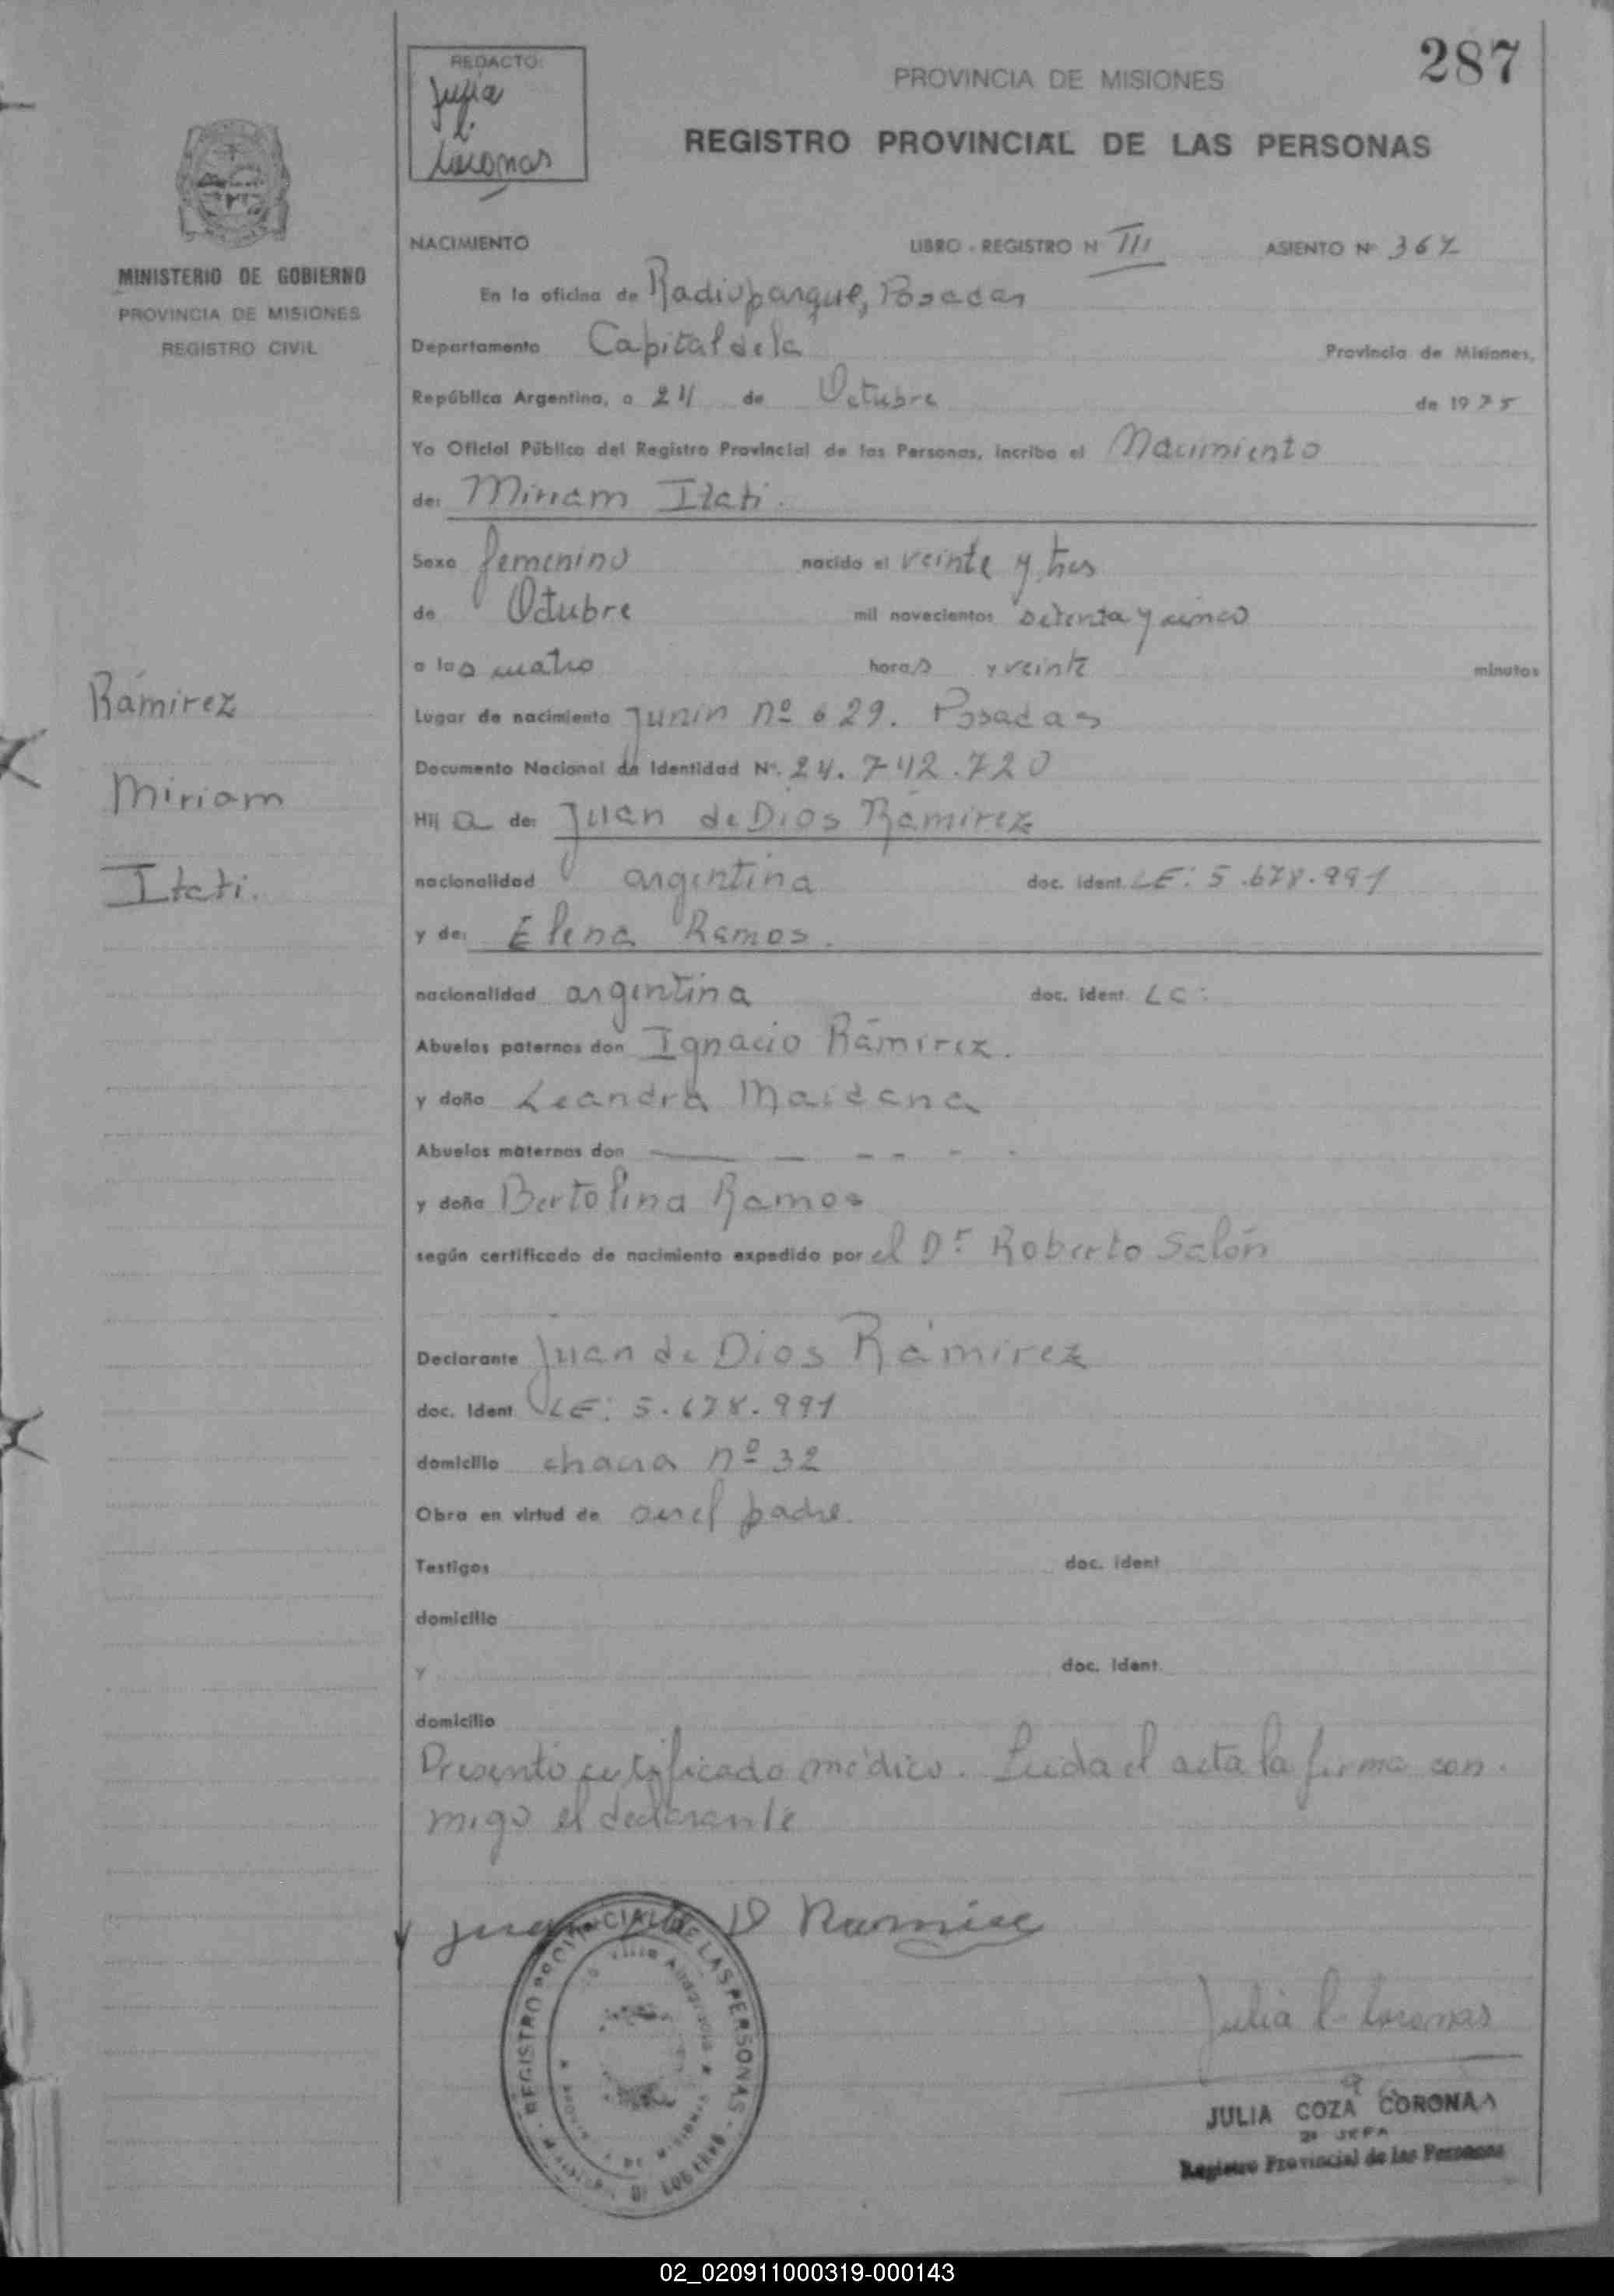 287
REDACTÓ:
Julia
C.
Coronas
PROVINCIA DE MISIONES
REGISTRO PROVINCIAL DE LAS PERSONAS
MINISTERIO DE GOBIERNO
PROVINCIA DE MISIONES
REGISTRO CIVIL
Rámirez
Miriam
Itati.
NACIMIENTO LIBRO - REGISTRO N III ASIENTO Nº 367
En la oficina de Radioparque, Posadas
Departamento Capital de la Provincia de Misiones,
República Argentina, a 24 de Octubre de 1975
Yo Oficial Público del Registro Provincial de las Personas, incribo el Nacimiento
de: Miriam Itati.
Sexo femenino nacido el veinte y tres
de Octubre mil novecientos setenta y cinco
a las cuatro horas y veinte minutos
Lugar de nacimiento Junin nº 629. Posadas
Documento Nacional de Identidad Nº. 24.742.720
Hij a de: Juan de Dios Rámirez
nacionalidad argentina doc. ident. LE: 5.678.991
y de: Elena Ramos.
nacionalidad argentina doc. ident. LC:
Abuelos paternos don Ignacio Rámirez.
y doña Leandra Maidana
Abuelos maternos don — — - - - -
y doña Bertolina Ramos
según certificado de nacimiento expedido por el Dr Roberto Salón
Declarante Juan de Dios Rámirez
doc. Ident. LE: 5.678.991
domicilio chacra nº 32
Obra en virtud de ser el padre.
Testigos doc. ident
domicilio
y doc. ident.
domicilio
Presentó certificado médico. Leida el acta la firma con-
migo el declarante
Juan de D Ramirez
REGISTRO PROVINCIAL DE LAS PERSONAS
Julia C. Coronas
JULIA COZA CORONAS
2ª JEFA
Registro Provincial de las Personas
02_020911000319-000143